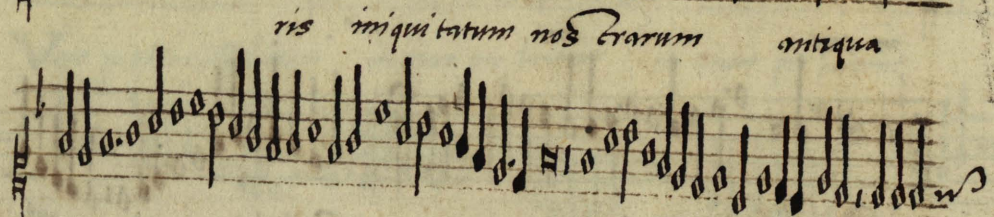 ris iniquitatum nostrarum antiqua